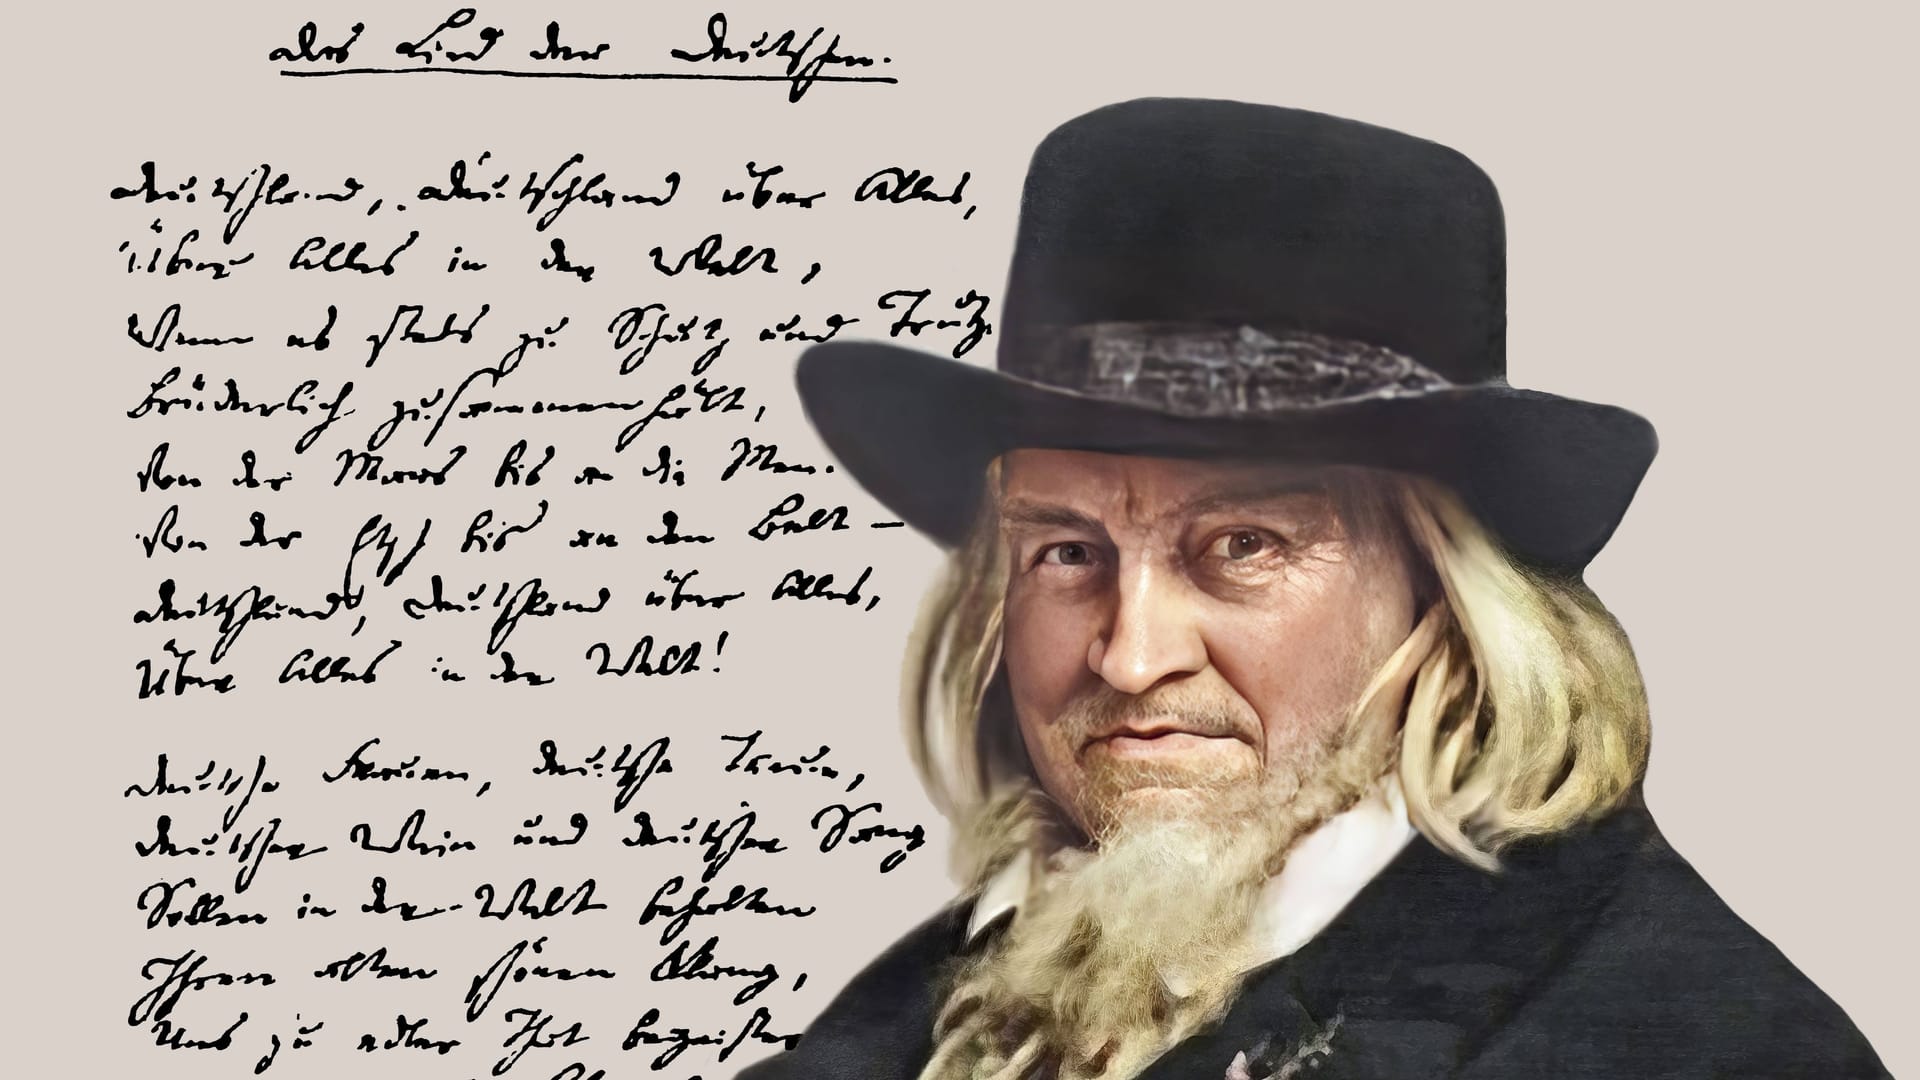 Das Lied der Deutschen.
Deutschland, Deutschland über Alles,
Über Alles in der Welt,
Wenn es stets zu Schutz und Trutze
Brüderlich zusammenhält,
Von der Maas bis an die Memel
Von der Etsch bis an den Belt –
Deutschland, Deutschland über Alles,
Über Alles in der Welt!
Deutsche Frauen, deutsche Treue,
Deutscher Wein und deutscher Sang
Sollen in der Welt behalten
Ihren alten schönen Klang,
Uns zu edler That begeistern